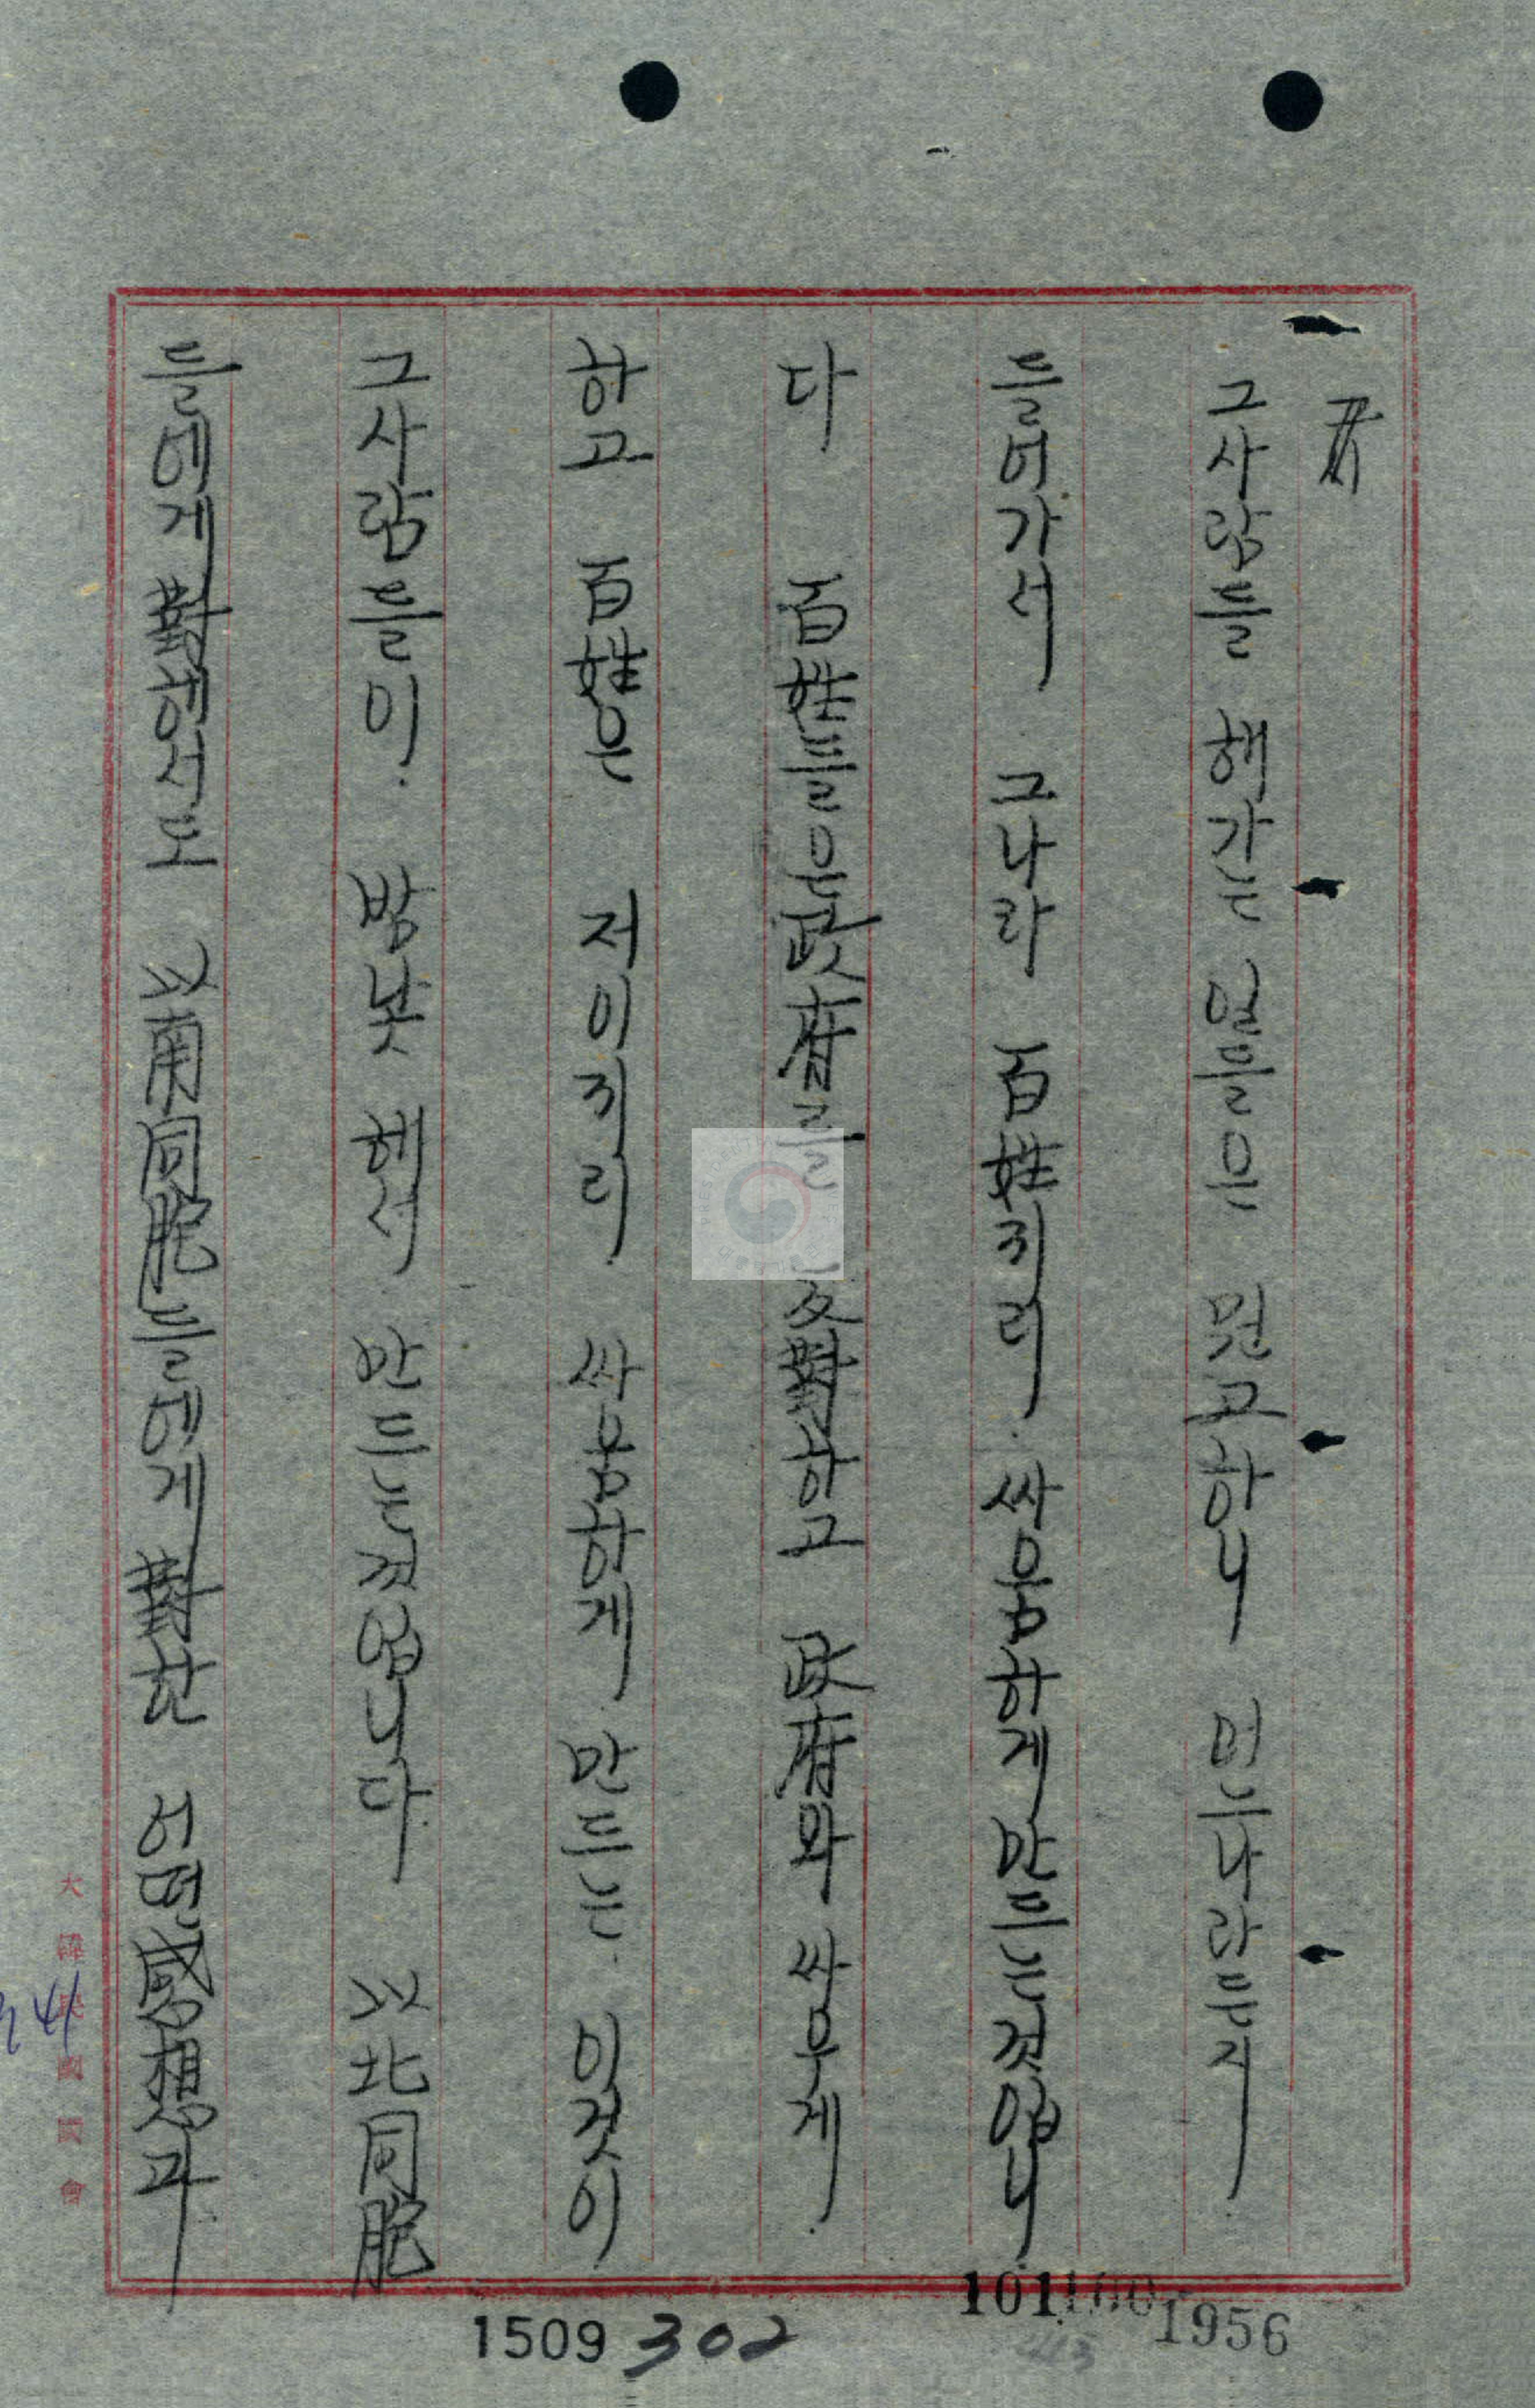 그사람들 해가는 일들은 뭔고하니 먼느나라든지
들어가서 그나라 百姓끼리 싸움하게 만드는것입니
다 百姓들은 政府를 反對하고 政府와 싸우게
하고 百姓은 저이끼리 싸움하게 만드는 이것이
그사람들이 밤낮 해서 만드는것입니다 以北同胞
들에게 對해서도 以南同胞들에게 對한 어떤 感想과
大韓民國國會
1509 302
101
1956